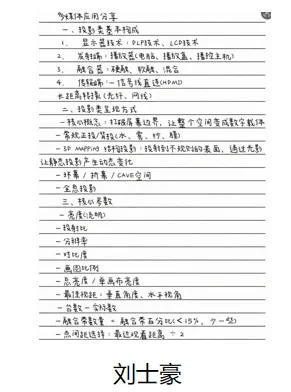 多媒体应用分享
一、投影类基本构成
1. 显示器技术：DLP技术、LCD技术
2. 发射端：播放器(电脑、播放盒、播控主机)
3. 融合器：硬融、软融、混合
4. 传输端：一信号线直连(HDMI)
长距离转换(光纤、网线)
二、投影类呈现方式
一核心概念：打破屏幕边界，让整个空间变成数字载体
- 常规正投/背投(水、雾、纱、膜)
- 3D MAPPING 结构投影：投射到不规则的表面，通过光影
让静态投影产生动态变化
- 环幕 / 折幕 / CAVE空间
- 全息投影
三、核心参数
- 亮度(流明)
- 投射比
- 分辨率
- 对比度
- 画面比例
- 总亮度 / 单画布亮度
- 最佳视距：垂直角度、水平视角
- 台数 - 实际数
- 融合带数量 = 融合带百分比(<15%, 少一些)
- 点间距选择：最近观看距离 ÷ 2
刘士豪